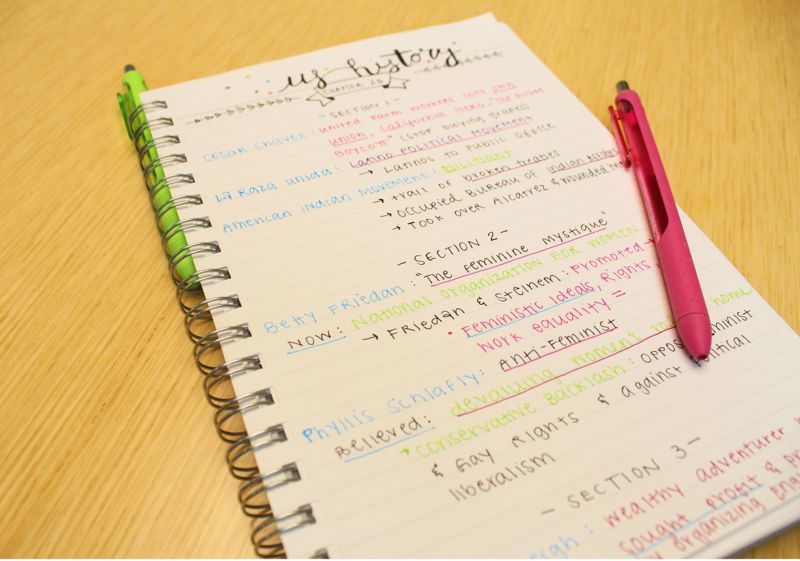 us history
CHAPTER 23
- SECTION 1 -
CESAR CHAVEZ: united farm workers into own
union, California Hero, "The
Boycott" (stop buying grapes)
La Raza Unida: LATINO POLITICAL MOVEMENT
→ Latinos to public office
American Indian Movement: militancy
→ trail of broken treaties
→ Occupied Bureau of Indian Affairs
→ Took over Alcatraz & Wounded
- SECTION 2 -
Betty Friedan: "The feminine mystique"
NOW: National Organization for Women
→ Friedan & Steinem: Promoted →
• Feministic Ideals, Rights
work equality =
Phyllis Schlafly: Anti-Feminist
Believed: devaluing women's home
→ conservative Backlash: Oppos
& Gay Rights & against
liberalism
- SECTION 3 -
: wealthy adventurer
sought profit &
organizing